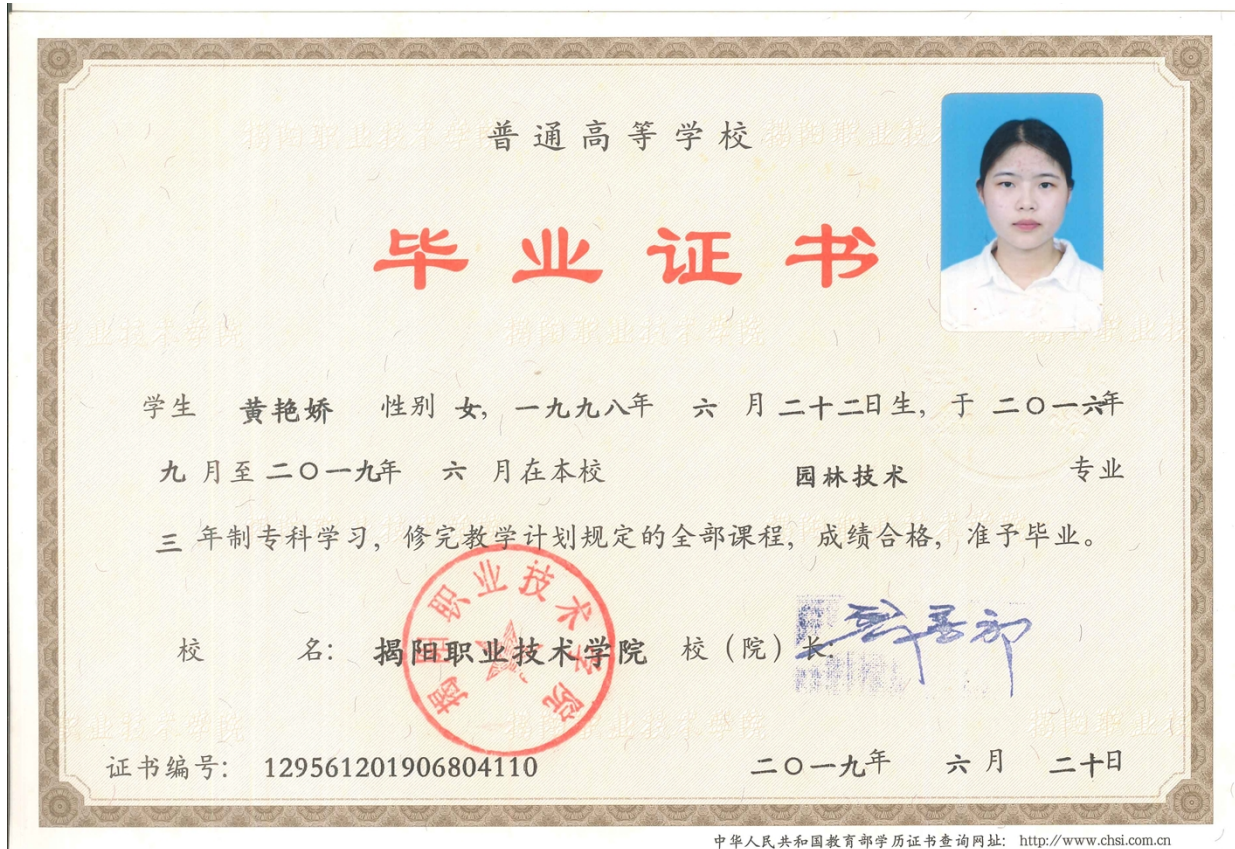 普通高等学校
毕业证书
学生 黄艳娇 性别 女, 一九九八年 六 月 二十二日生, 于 二〇一六年
九 月至 二〇一九年 六 月在本校 园林技术 专业
三 年制专科学习, 修完教学计划规定的全部课程, 成绩合格, 准予毕业。
校 名: 揭阳职业技术学院 校(院)长:
揭阳职业技术学院
证书编号: 129561201906804110 二〇一九年 六 月 二十日
中华人民共和国教育部学历证书查询网址: http://www.chsi.com.cn